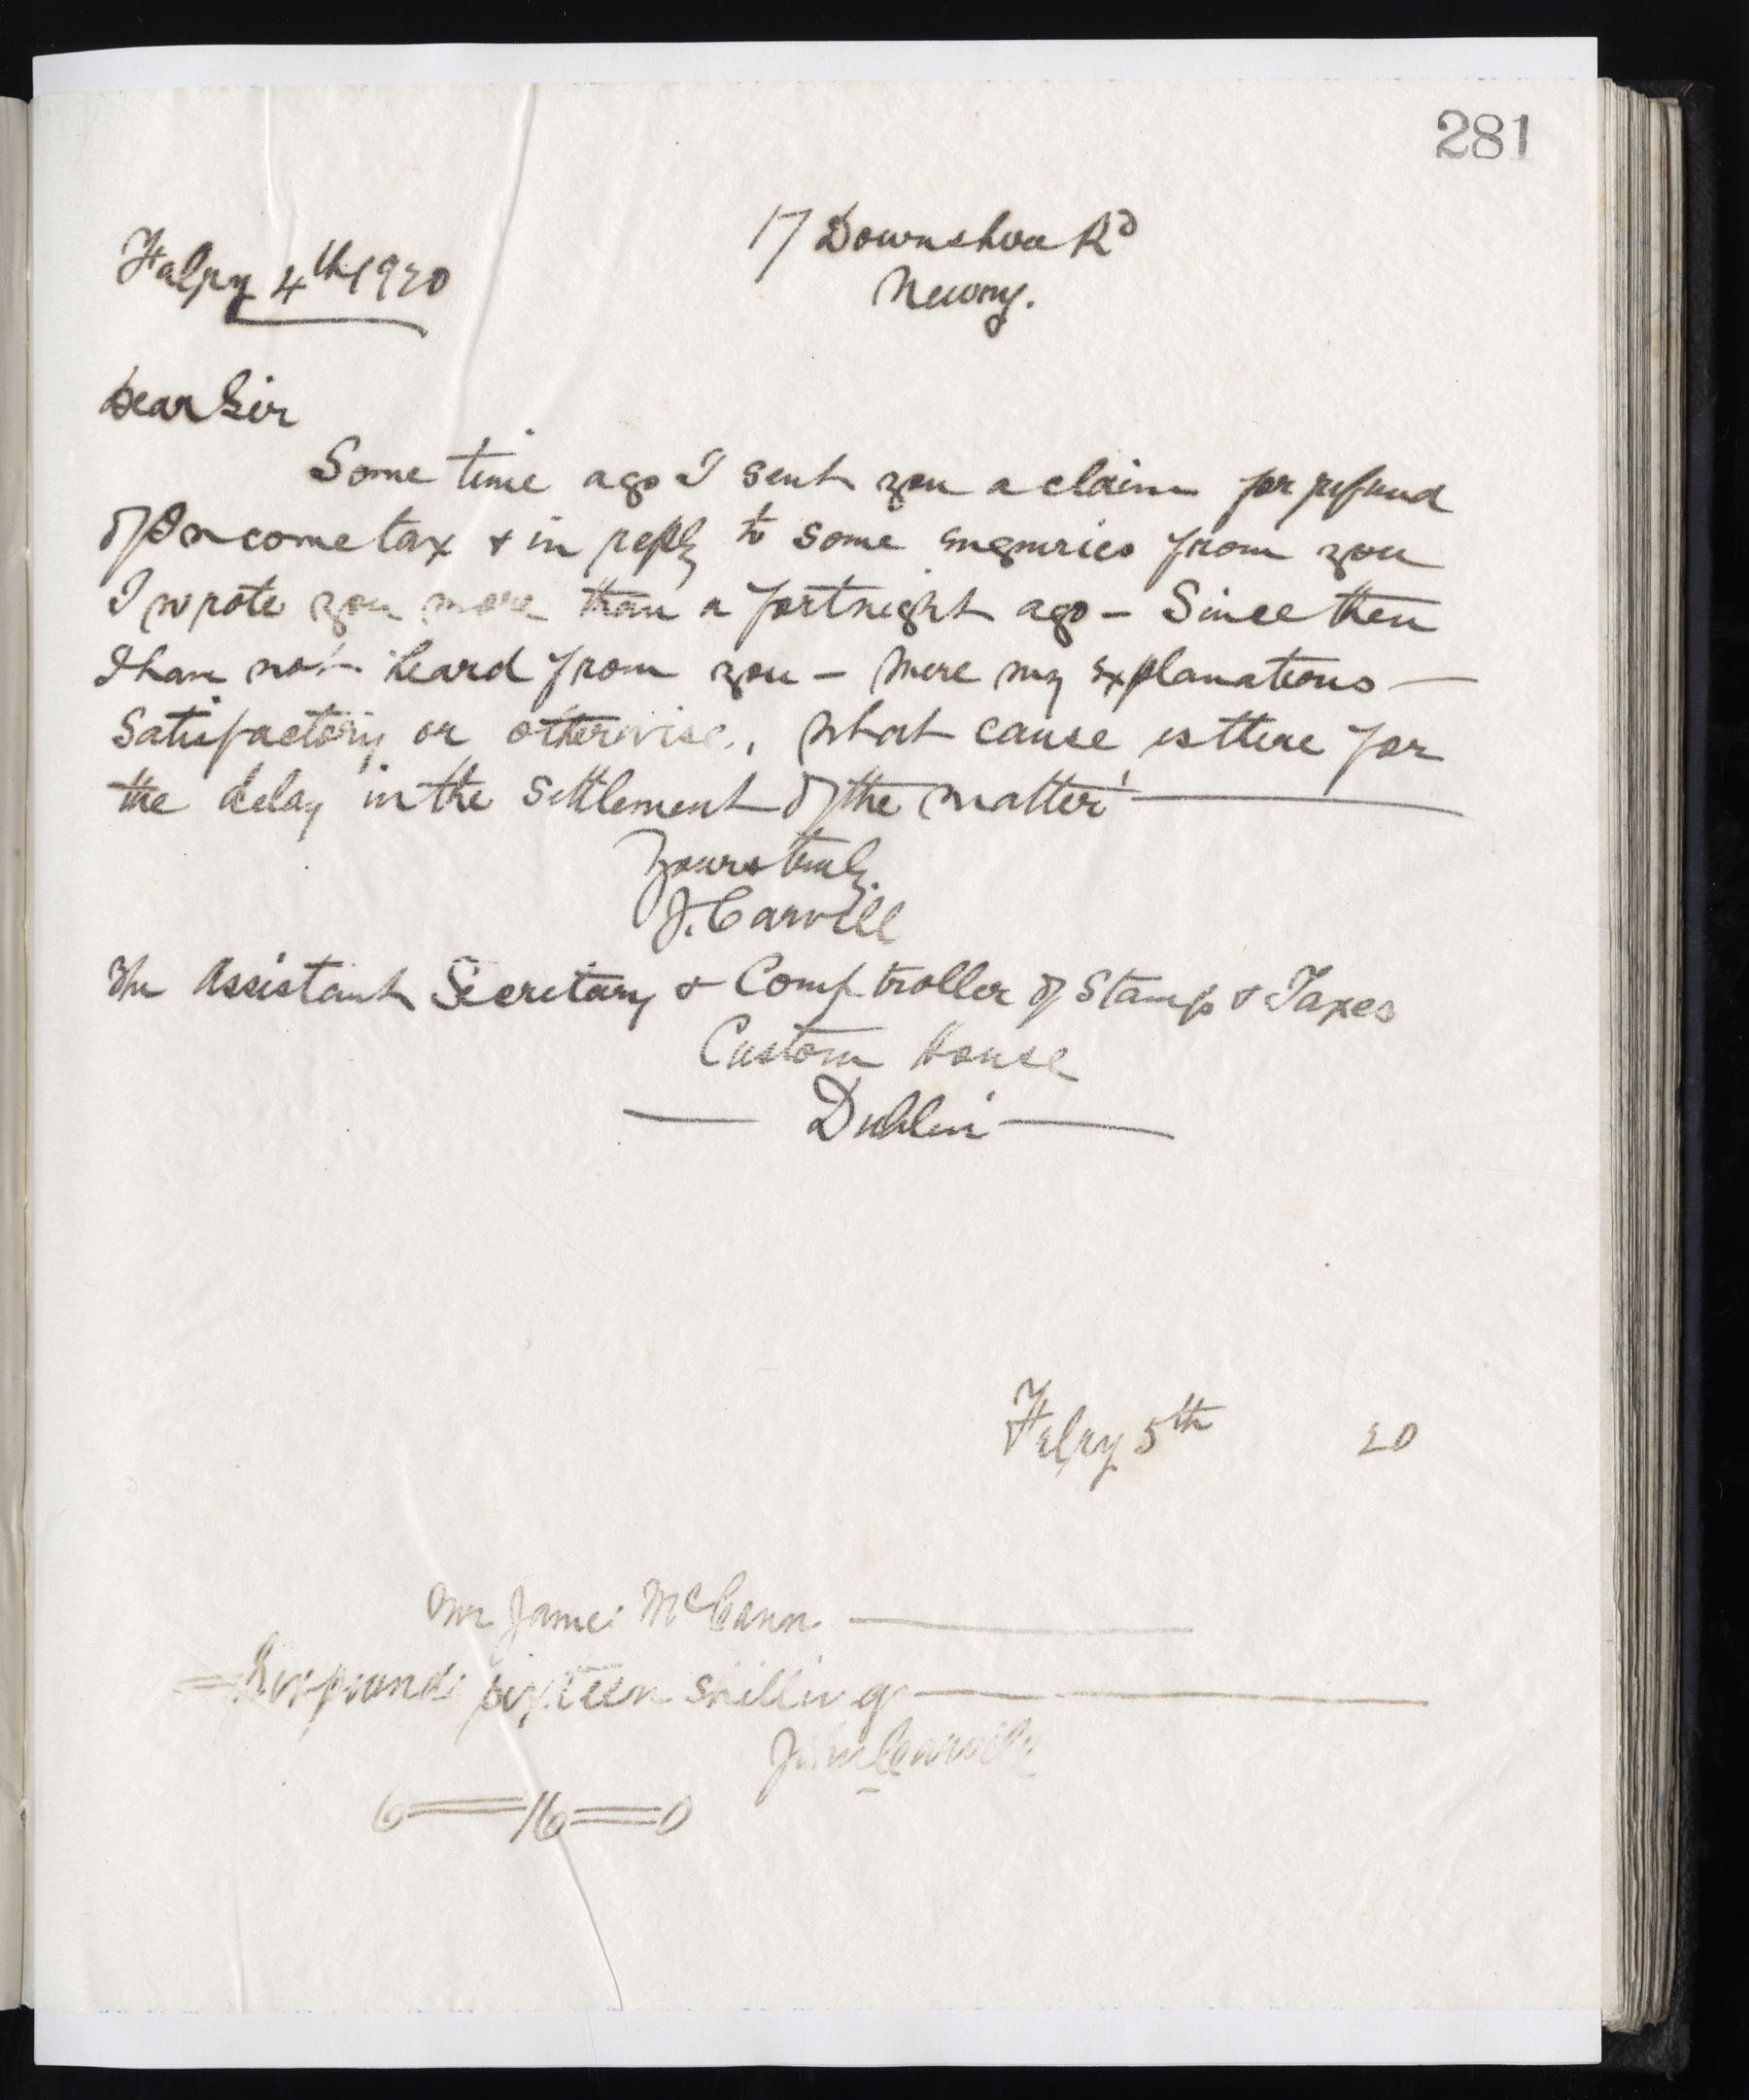 281
17 Downshire Rd
Feby 4th 1920
Newry.
Dear Sir
Some time ago I sent you a claim for refund
of Income tax & in reply to some enquiries from you
I wrote you more than a fortnight ago - Since then
I have not heard from you - Were my explanations -
Satisfactory or otherwise, What cause is there for
the delay in the settlement of the matter
Yours truly
J. Carvill
The Assistant Secretary & Comptroller of Stamps & Taxes
Custom House
Dublin
Feby 5th 20
Mr James McCann
Six pounds sixteen shillings
John Carvill
6 = 16 = 0